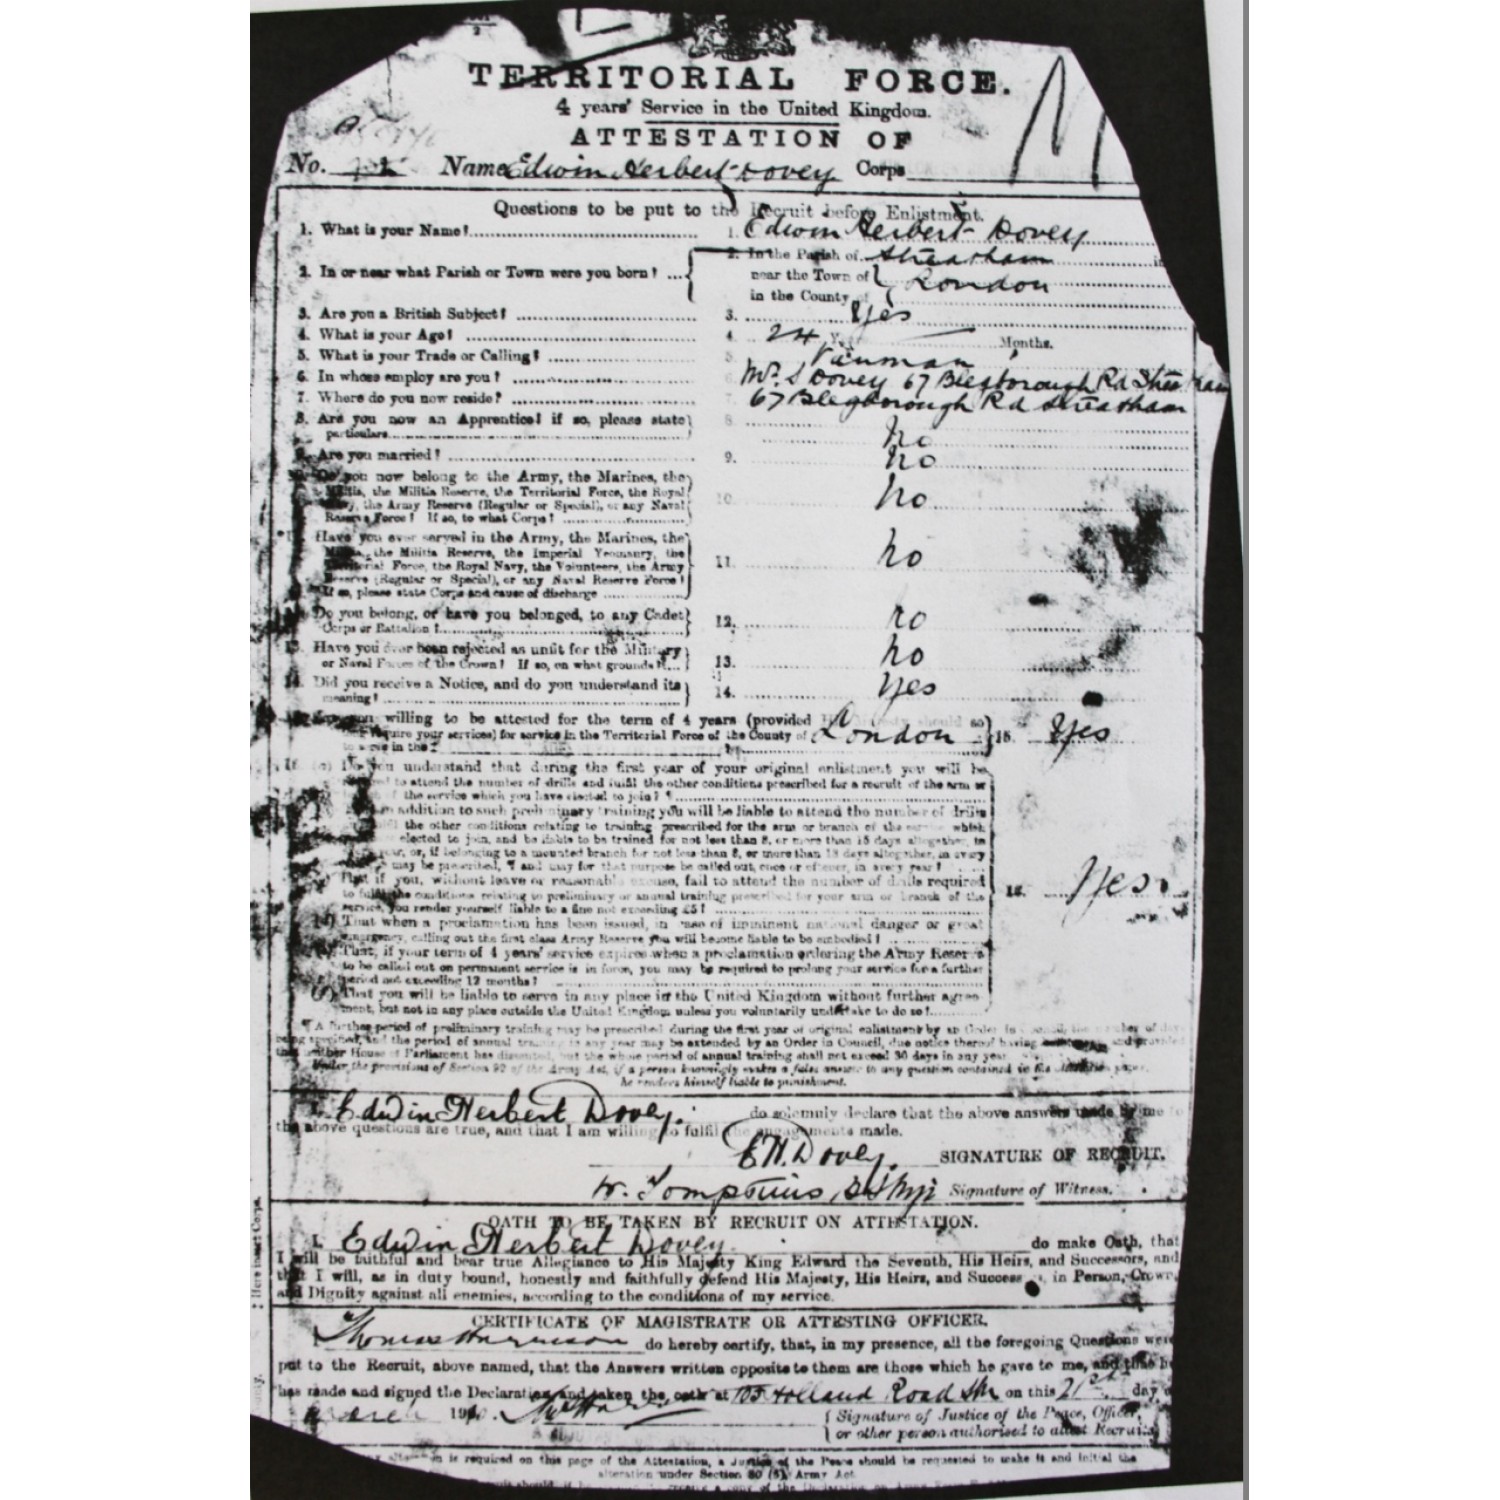 TERRITORIAL FORCE.
4 years' Service in the United Kingdom.
ATTESTATION OF
No. Name Edwin Herbert Dovey Corps
Questions to be put to the Recruit before Enlistment.
1. What is your Name? 1. Edwin Herbert Dovey
2. In or near what Parish or Town were you born? 2. In the Parish of Streatham in
near the Town of London
in the County of
3. Are you a British Subject? 3. Yes
4. What is your Age? 4. 24 Months.
5. What is your Trade or Calling? 5. Vanman
6. In whose employ are you? Mr. S Dovey 67 Blegborough Rd Streatham
7. Where do you now reside? 7. 67 Blegborough Rd Streatham
8. Are you now an Apprentice? if so, please state 8.
particulars. No
9. Are you married? 9. No
10. Do you now belong to the Army, the Marines, the
Militia, the Militia Reserve, the Territorial Force, the Royal 10. No
Navy, the Army Reserve (Regular or Special), or any Naval
Reserve Force? If so, to what Corps?
11. Have you ever served in the Army, the Marines, the
Militia, the Militia Reserve, the Imperial Yeomanry, the
Territorial Force, the Royal Navy, the Volunteers, the Army 11. No
Reserve (Regular or Special), or any Naval Reserve Force?
If so, please state Corps and cause of discharge
12. Do you belong, or have you belonged, to any Cadet
Corps or Battalion? 12. No
13. Have you ever been rejected as unfit for the Military
or Naval Forces of the Crown? If so, on what grounds? 13. No
14. Did you receive a Notice, and do you understand its
meaning? 14. Yes
you willing to be attested for the term of 4 years (provided His Majesty should so
require your services) for service in the Territorial Force of the County of London 15. Yes
to serve in the
Do you understand that during the first year of your original enlistment you will be
to attend the number of drills and fulfil the other conditions prescribed for a recruit of the arm or
of the service which you have elected to join? ¶
addition to such preliminary training you will be liable to attend the number of drills
the other conditions relating to training prescribed for the arm or branch of the service which
elected to join, and be liable to be trained for not less than 8, or more than 15 days altogether, in
year, or, if belonging to a mounted branch for not less than 8, or more than 18 days altogether, in every
may be prescribed, ¶ and may for that purpose be called out, once or oftener, in every year?
That if you, without leave or reasonable excuse, fail to attend the number of drills required
to fulfil the conditions relating to preliminary or annual training prescribed for your arm or branch of the 16. Yes.
service, you render yourself liable to a fine not exceeding £5?
That when a proclamation has been issued, in case of imminent national danger or great
emergency, calling out the first class Army Reserve you will become liable to be embodied?
That, if your term of 4 years' service expires when a proclamation ordering the Army Reserve
to be called out on permanent service is in force, you may be required to prolong your service for a further
period not exceeding 12 months?
That you will be liable to serve in any place in the United Kingdom without further agree
ment, but not in any place outside the United Kingdom unless you voluntarily undertake to do so?
¶ A further period of preliminary training may be prescribed during the first year of original enlistment by an Order in Council, the number of days
being specified, and the period of annual training in any year may be extended by an Order in Council, due notice thereof having and provided
that neither House of Parliament has dissented, but the whole period of annual training shall not exceed 30 days in any year
Under the provisions of Section 99 of the Army Act, if a person knowingly makes a false answer to any question contained in the Attestation paper,
he renders himself liable to punishment.
I, Edwin Herbert Dovey. do solemnly declare that the above answers made by me to
the above questions are true, and that I am willing to fulfil the engagements made.
E H. Dovey. SIGNATURE OF RECRUIT.
W. Signature of Witness.
OATH TO BE TAKEN BY RECRUIT ON ATTESTATION.
I, Edwin Herbert Dovey. do make Oath, that
I will be faithful and bear true Allegiance to His Majesty King Edward the Seventh, His Heirs, and Successors, and
that I will, as in duty bound, honestly and faithfully defend His Majesty, His Heirs, and Successors, in Person, Crown,
and Dignity against all enemies, according to the conditions of my service.
CERTIFICATE OF MAGISTRATE OR ATTESTING OFFICER.
I Thomas Harrison do hereby certify, that, in my presence, all the foregoing Questions were
put to the Recruit, above named, that the Answers written opposite to them are those which he gave to me, and that he
has made and signed the Declaration and taken the oath at 105 Holland Road on this 21st day of
March 1910.
Signature of Justice of the Peace, Officer,
or other person authorised to attest Recruits
is required on this page of the Attestation, a Justice of the Peace should be requested to make it and initial the
alteration under Section 80 (5), Army Act.